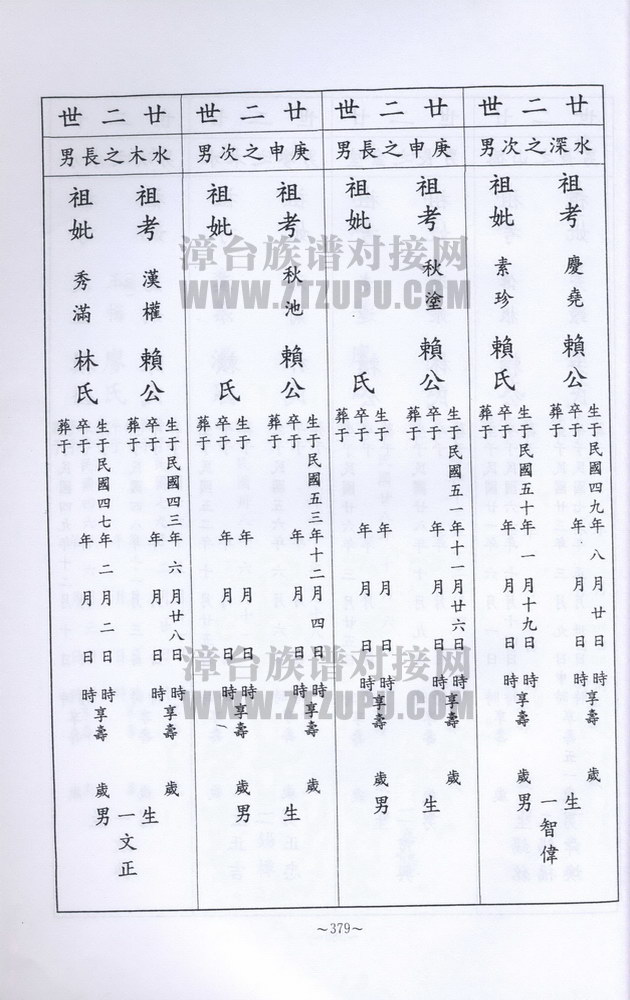 廿二世
水深之次男
祖考 慶堯 賴公
生于民國四九年八月廿日 時享壽 歲
卒于 年 月 日 時
葬于
祖妣 素珍 賴氏
生于民國五十年一月十九日 時享壽 歲
卒于 年 月 日 時
葬于
生一男
智偉
廿二世
庚申之長男
祖考 秋塗 賴公
生于民國五一年十一月廿六日 時享壽 歲
卒于 年 月 日 時
葬于
祖妣 氏
生于 年 月 日 時享壽 歲
卒于 年 月 日 時
葬于
生 男
廿二世
庚申之次男
祖考 秋池 賴公
生于民國五三年十二月四日 時享壽 歲
卒于 年 月 日 時
葬于
祖妣 氏
生于 年 月 日 時享壽 歲
卒于 年 月 日 時
葬于
生 男
廿二世
水木之長男
祖考 漢權 賴公
生于民國四三年六月廿八日 時享壽 歲
卒于 年 月 日 時
葬于
祖妣 秀滿 林氏
生于民國四七年二月二日 時享壽 歲
卒于 年 月 日 時
葬于
生一男
文正
漳台族谱对接网
WWW.ZTZUPU.COM
漳台族谱对接网
WWW.ZTZUPU.COM
~379~